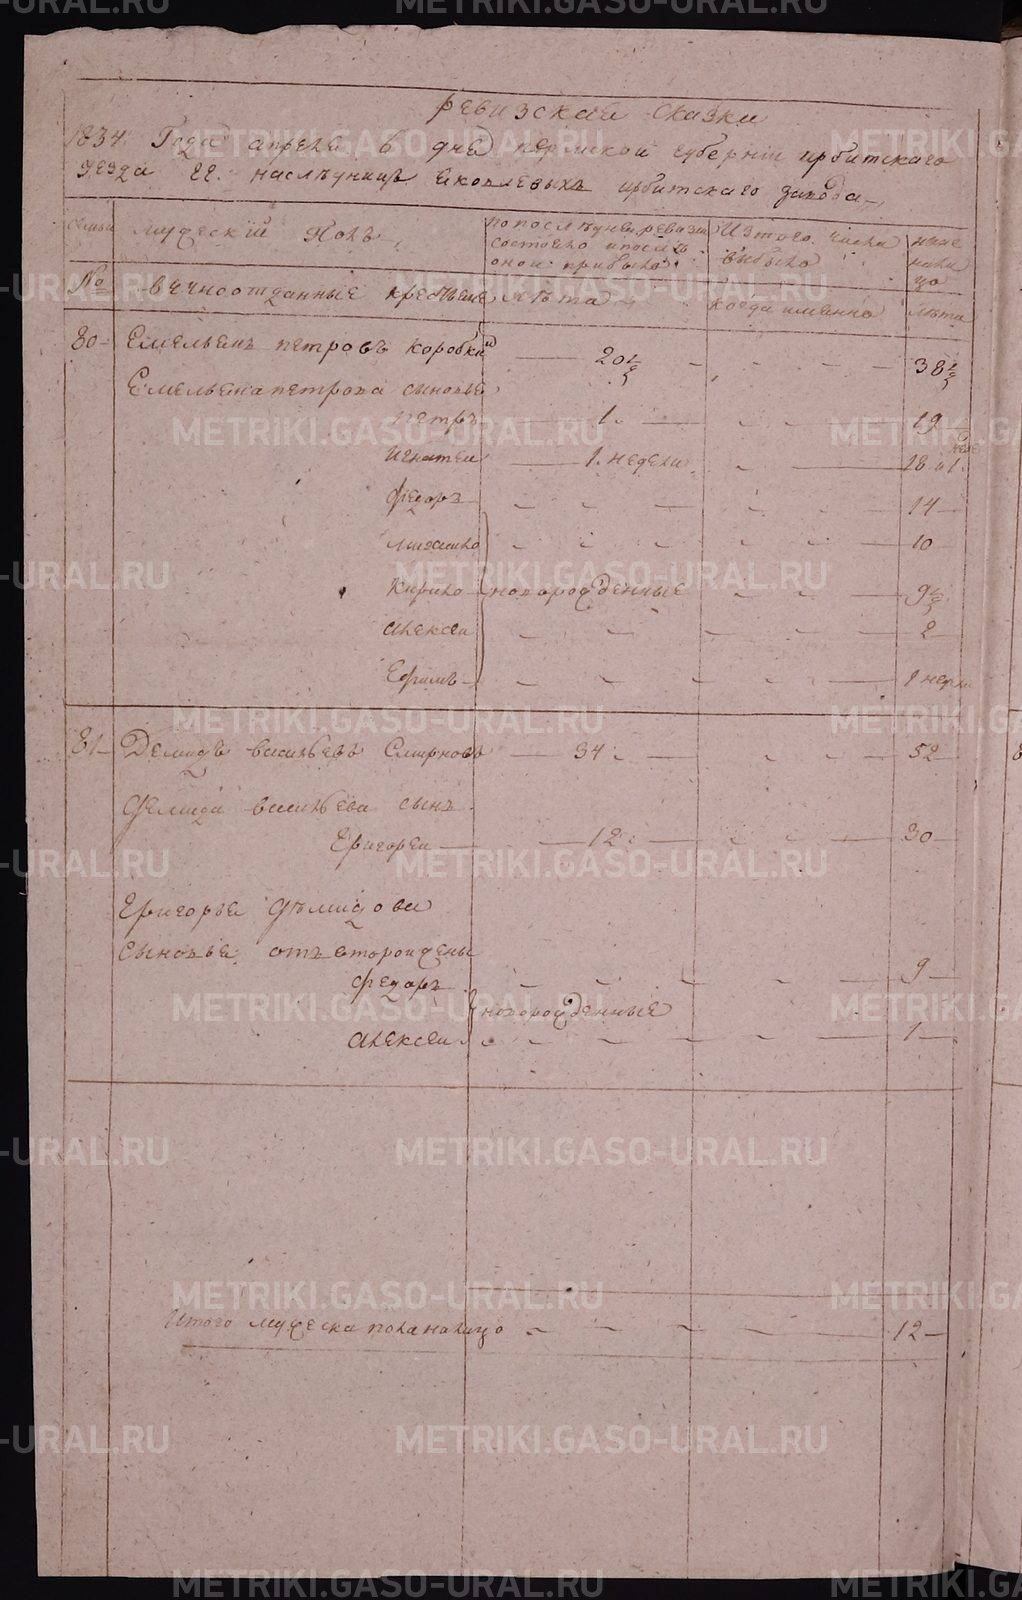 ревизская сказка
1834 Года апреля в дня пермской губернии ирбитскаго
уезда гг. наследниц яковлевых ирбитскаго завода
семьи мужескій Полъ по последней ревизии Изтого числа ныне
состояло и после выбыло на ли
оной прибыло цо
№ вечноотданные крестьяне лета когда именно лета
80 Емельян петровъ коробкин 20 1/2 38 1/2
Емельяна петрова сыновья
петръ 1. 19
Игнатей 1. недели 18 и 1. неде
Федоръ 14
михайло 10
Кирило новорожденные 9 1/2
Алексей 2
Ефимъ 1 недели
81 Демидъ васильевъ Смирновъ 34 52
Демида васильева сынъ
Григорей 12 30
Григорья Демидова
Сыновья от второй жены
Федоръ 9
новорожденные
Алексей 1
Итого мужеска пола налицо 12
METRIKI.GASO-URAL.RU